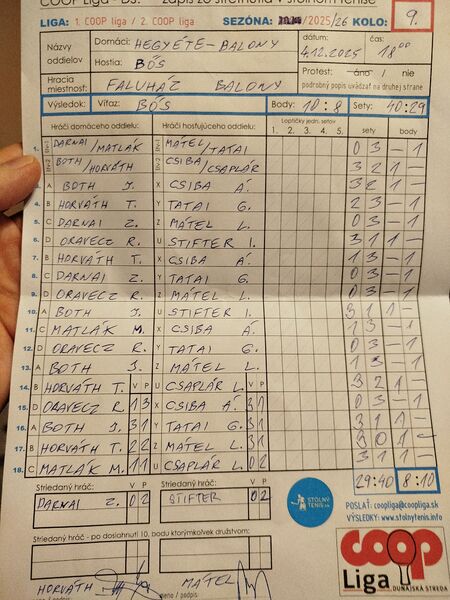 COOP Liga - DS: zápis zo stretnutia v stolnom tenise
LIGA: 1. COOP liga / 2. COOP liga SEZÓNA: 2025/26 KOLO: 9.
Názvy oddielov Domáci: HEGYÉTE-BALONY dátum: 4.12.2025 čas: 18 00
Hostia: BŐS
Hracia miestnosť: FALUHÁZ BALONY Protest: áno / nie
podrobný popis uvádzať na druhej strane
Výsledok: Víťaz: BŐS Body: 10:8 Sety: 40:29
Hráči domáceho oddielu: Hráči hosťujúceho oddielu: Loptičky jedn. setov: sety body
1. 2. 3. 4. 5.
1. DARNAI/MATLÁK MÁTEL/TATAI 0 3 - 1
2. BOTH/HORVÁTH CSIBA/CSAPLÁR 3 2 1 -
3. A BOTH J. X CSIBA Á. 3 2 1 -
4. B HORVÁTH T. Y TATAI G. 2 3 - 1
5. C DARNAI Z. Z MÁTEL L. 0 3 - 1
6. D ORAVECZ R. U STIFTER I. 3 1 1 -
7. B HORVÁTH T. X CSIBA Á. 1 3 - 1
8. C DARNAI Z. Y TATAI G. 0 3 - 1
9. D ORAVECZ R. Z MÁTEL L. 0 3 - 1
10. A BOTH J. U STIFTER I. 3 1 1 -
11. C MATLÁK M. X CSIBA Á. 1 3 - 1
12. D ORAVECZ R. Y TATAI G. 0 3 - 1
13. A BOTH J. Z MÁTEL L. 1 3 - 1
14. B HORVÁTH T. V P U CSAPLÁR L. V P 3 2 1 -
15. D ORAVECZ R. 1 3 X CSIBA Á. 3 1 0 3 - 1
16. A BOTH J. 3 1 Y TATAI G. 3 1 3 1 1 -
17. B HORVÁTH T. 2 2 Z MÁTEL L. 3 1 3 0 1 -
18. C MATLÁK M. 1 1 U CSAPLÁR L. 0 2 3 1 1 -
Striedaný hráč: V P Striedaný hráč: V P 29:40 8:10
DARNAI Z. 0 2 STIFTER 0 2
STOLNÝ
TENIS.SK
POSLAŤ: coopliga@coopliga.sk
VÝSLEDKY: www.stolnytenis.info
Striedaný hráč - po dosiahnutí 10. bodu ktorýmkoľvek družstvom:
coop
Liga DUNAJSKÁ STREDA
HORVÁTH MÁTEL
meno / podpis